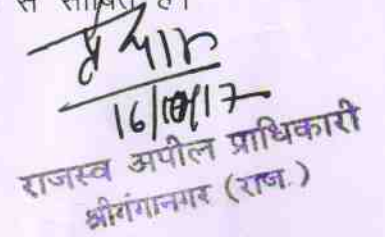 से साबित है।
16/10/17
राजस्व अपील प्राधिकारी
श्रीगंगानगर (राज.)